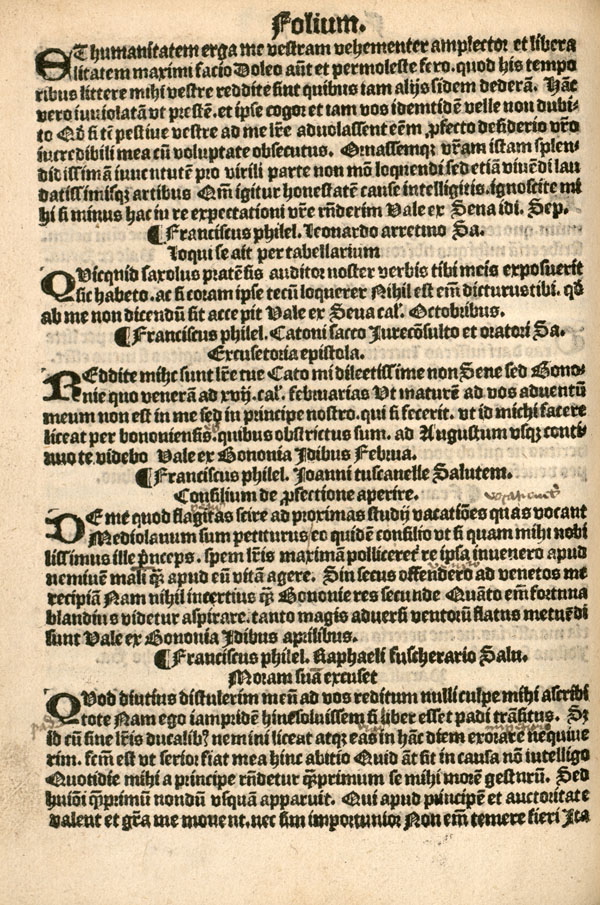 Folium.
ET humanitatem erga me vestram vehementer amplector et libera
litatem maximi facio Doleo aūt et permoleste fero. quod his tempo
ribus littere mihi vestre reddite sint quibus tam alijs fidem dederā. Hāc
vero inviolatā vt prestē. et ipse cogor et tam vos idemtidē velle non dubi-
to Qd si tē pestiue vestre ad me lr̄e aduolassent eēm ꝓfecto desiderio vr̄o
incredibili mea cū voluptate obsecutus. Ornassemqꝫ vr̄am istam splen-
did issimā iuuētutē pro virili parte non mō loquendi sed etiā viuēdi lau
datissimisqꝫ artibus Qm̄ igitur honestatē cause intelligitis. ignoscite mi
hi si minus hac in re expectationi vr̄e rn̄derim Vale ex Sena idi. Sep.
¶ Franciscus philel. Leonardo arretino Sa.
loqui se ait per tabellarium
QVicqnid saxolus pratēsis auditor noster verbis tibi meis exposuerit
sic habeto. ac si coram ipse tecū loquerer Nihil est em̄ dicturus tibi. qd̄
ab me non dicendū sit acce pit Vale ex Seua cal̓. Octobribus.
¶ Franciscus philel. Catoni sacco Jurecōsulto et oratori Sa.
Excusetoria epistola.
REddite mihc sunt lr̄e tue Cato mi dilectissime non Sene sed Gono-
nie quo venerā ad xvij. cal̓. februarias Vt maturē ad vos aduentū
meum non est in me sed in principe nostro. qui si fecerit. vt id michi facere
liceat per bononiensis. quibus obstrictus sum. ad Augustum vsqꝫ conti-
nuo te videbo Vale ex Gononia Idibus Februa.
¶ Franciscus philel. Ioanni tuscanelle Salutem.
Consilium de ꝓfectione aperire.
DE me quod flagitas scire ad proximas studij vacatiōes quas vocant
Mediolanum sum petiturus eo quidē consilio vt si quam mihi nobi
lissimus ille pn̄ceps. spem lr̄is maximā polliceret̄ re ipsa inuenero apud
neminē mali qꝫ apud eū vitā agere. Sin secus offendero ad venetos me
recipiā Nam nihil incertius qꝫ Gononie res secunde Quāto em̄ fortuna
blandius videtur aspirare. tanto magis aduersi ventorū flatus metuēdi
sunt Vale ex Gononia Idibus aprilibus.
¶ Franciscus philel. Raphaeli fuscherario Salu.
Moram suā excuset
QVod diutius distulerim meū ad vos reditum nulli culpe mihi ascribi
tote Nam ego iampridē hinc soluissem si liber esset padi trāsitus. Sꝫ
id cū sine lr̄is ducalibꝫ nemini liceat atqꝫ eas in hāc diem exorare nequiue
rim. fcm̄ est vt serior fiat mea hinc abitio Quid āt sit in causa nō intelligo
Quotidie mihi a principe rn̄detur qꝫprimum se mihi morē gesturū. Sed
huiōi qꝫprimū nondū vsquā apparuit. Qui apud principē et auctoritate
valent et gr̄a me mouent. nec sim importunior Non em̄ temere fieri Ita